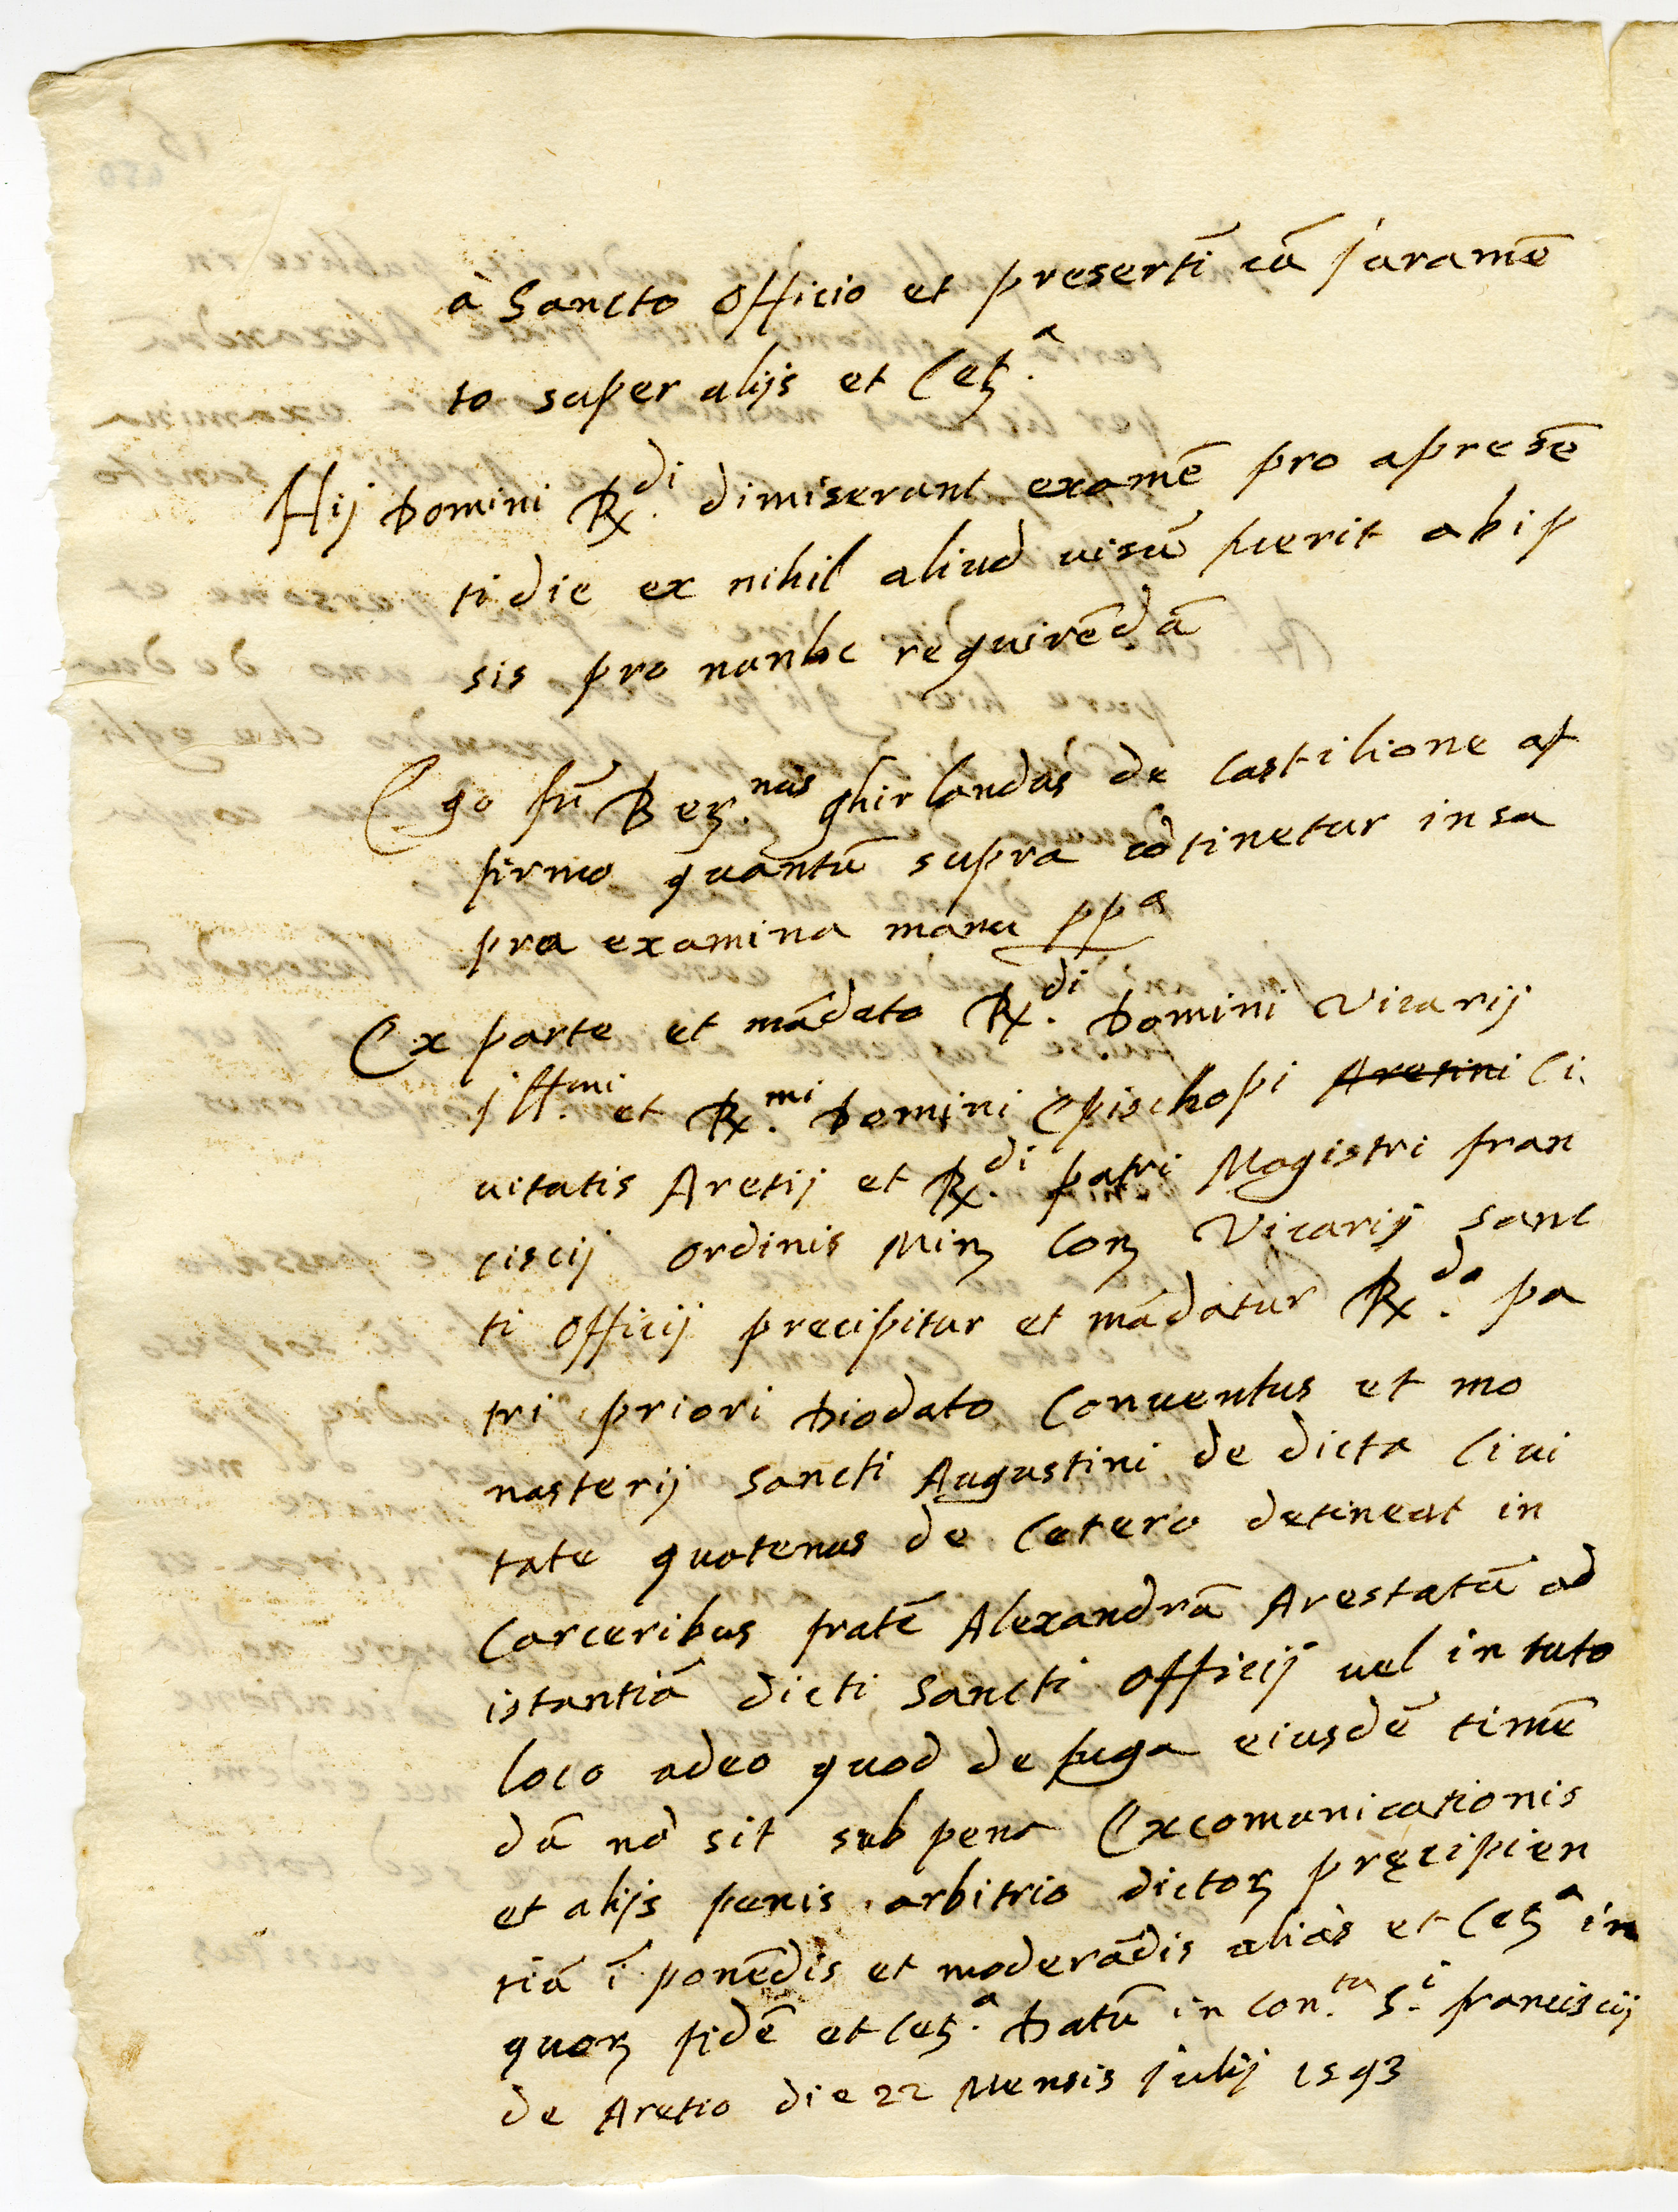 à Sancto officio et presertĩ cũ juramẽ
to super alijs et Cetꝝ.ᵃ
Hij Domini Rx.ᵈⁱ dimiserunt examẽ pro apresẽ
ti die ex nihil aliud uisũ fuerit ab ip
sis pro nunhc requirẽdũ
Ego fr̃ Berꝝ.ⁿᵘˢ ghirlandus de Castilione af
firmo quantũ supra cõtinetur in su
pra examina manu ppᵃ
Ex parte et mãdato Rx.ᵈⁱ Domini Vicarij
jll.ᵐⁱ et Rx.ᵐⁱ Domini Epischopi Aretini Ci
uitatis Aretij et Rx.ᵈⁱ patri Magistri fran
ciscij ordinis Minꝝ Conꝝ Vicarij sanc
ti officij precipitur et mãdatur Rx.ᵈᵒ pa
tri priori Diodato Conuentus et mo
nasterij sancti Augustini de dicta Ciui
tate quotenus de Cetero detineat in
Carceribus fratẽ Alexandrũ Arestatũ ad
istantiã dicti sancti officij uel in tuto
loco adeo quod de fuga eiusdẽ timẽ
dũ nõ sit sub pena Excomunicationis
et alijs penis arbitrio dictoꝝ pręcipien
tiũ ĩ ponẽdis et moderãdis alias et Cetꝝᵃ in
quorꝝ fidẽ et Cetꝝ.ᵃ Datũ in Con.ᵗᵘ S.ⁱ franciscij
de Aretio die 22 Mensis julij 1593